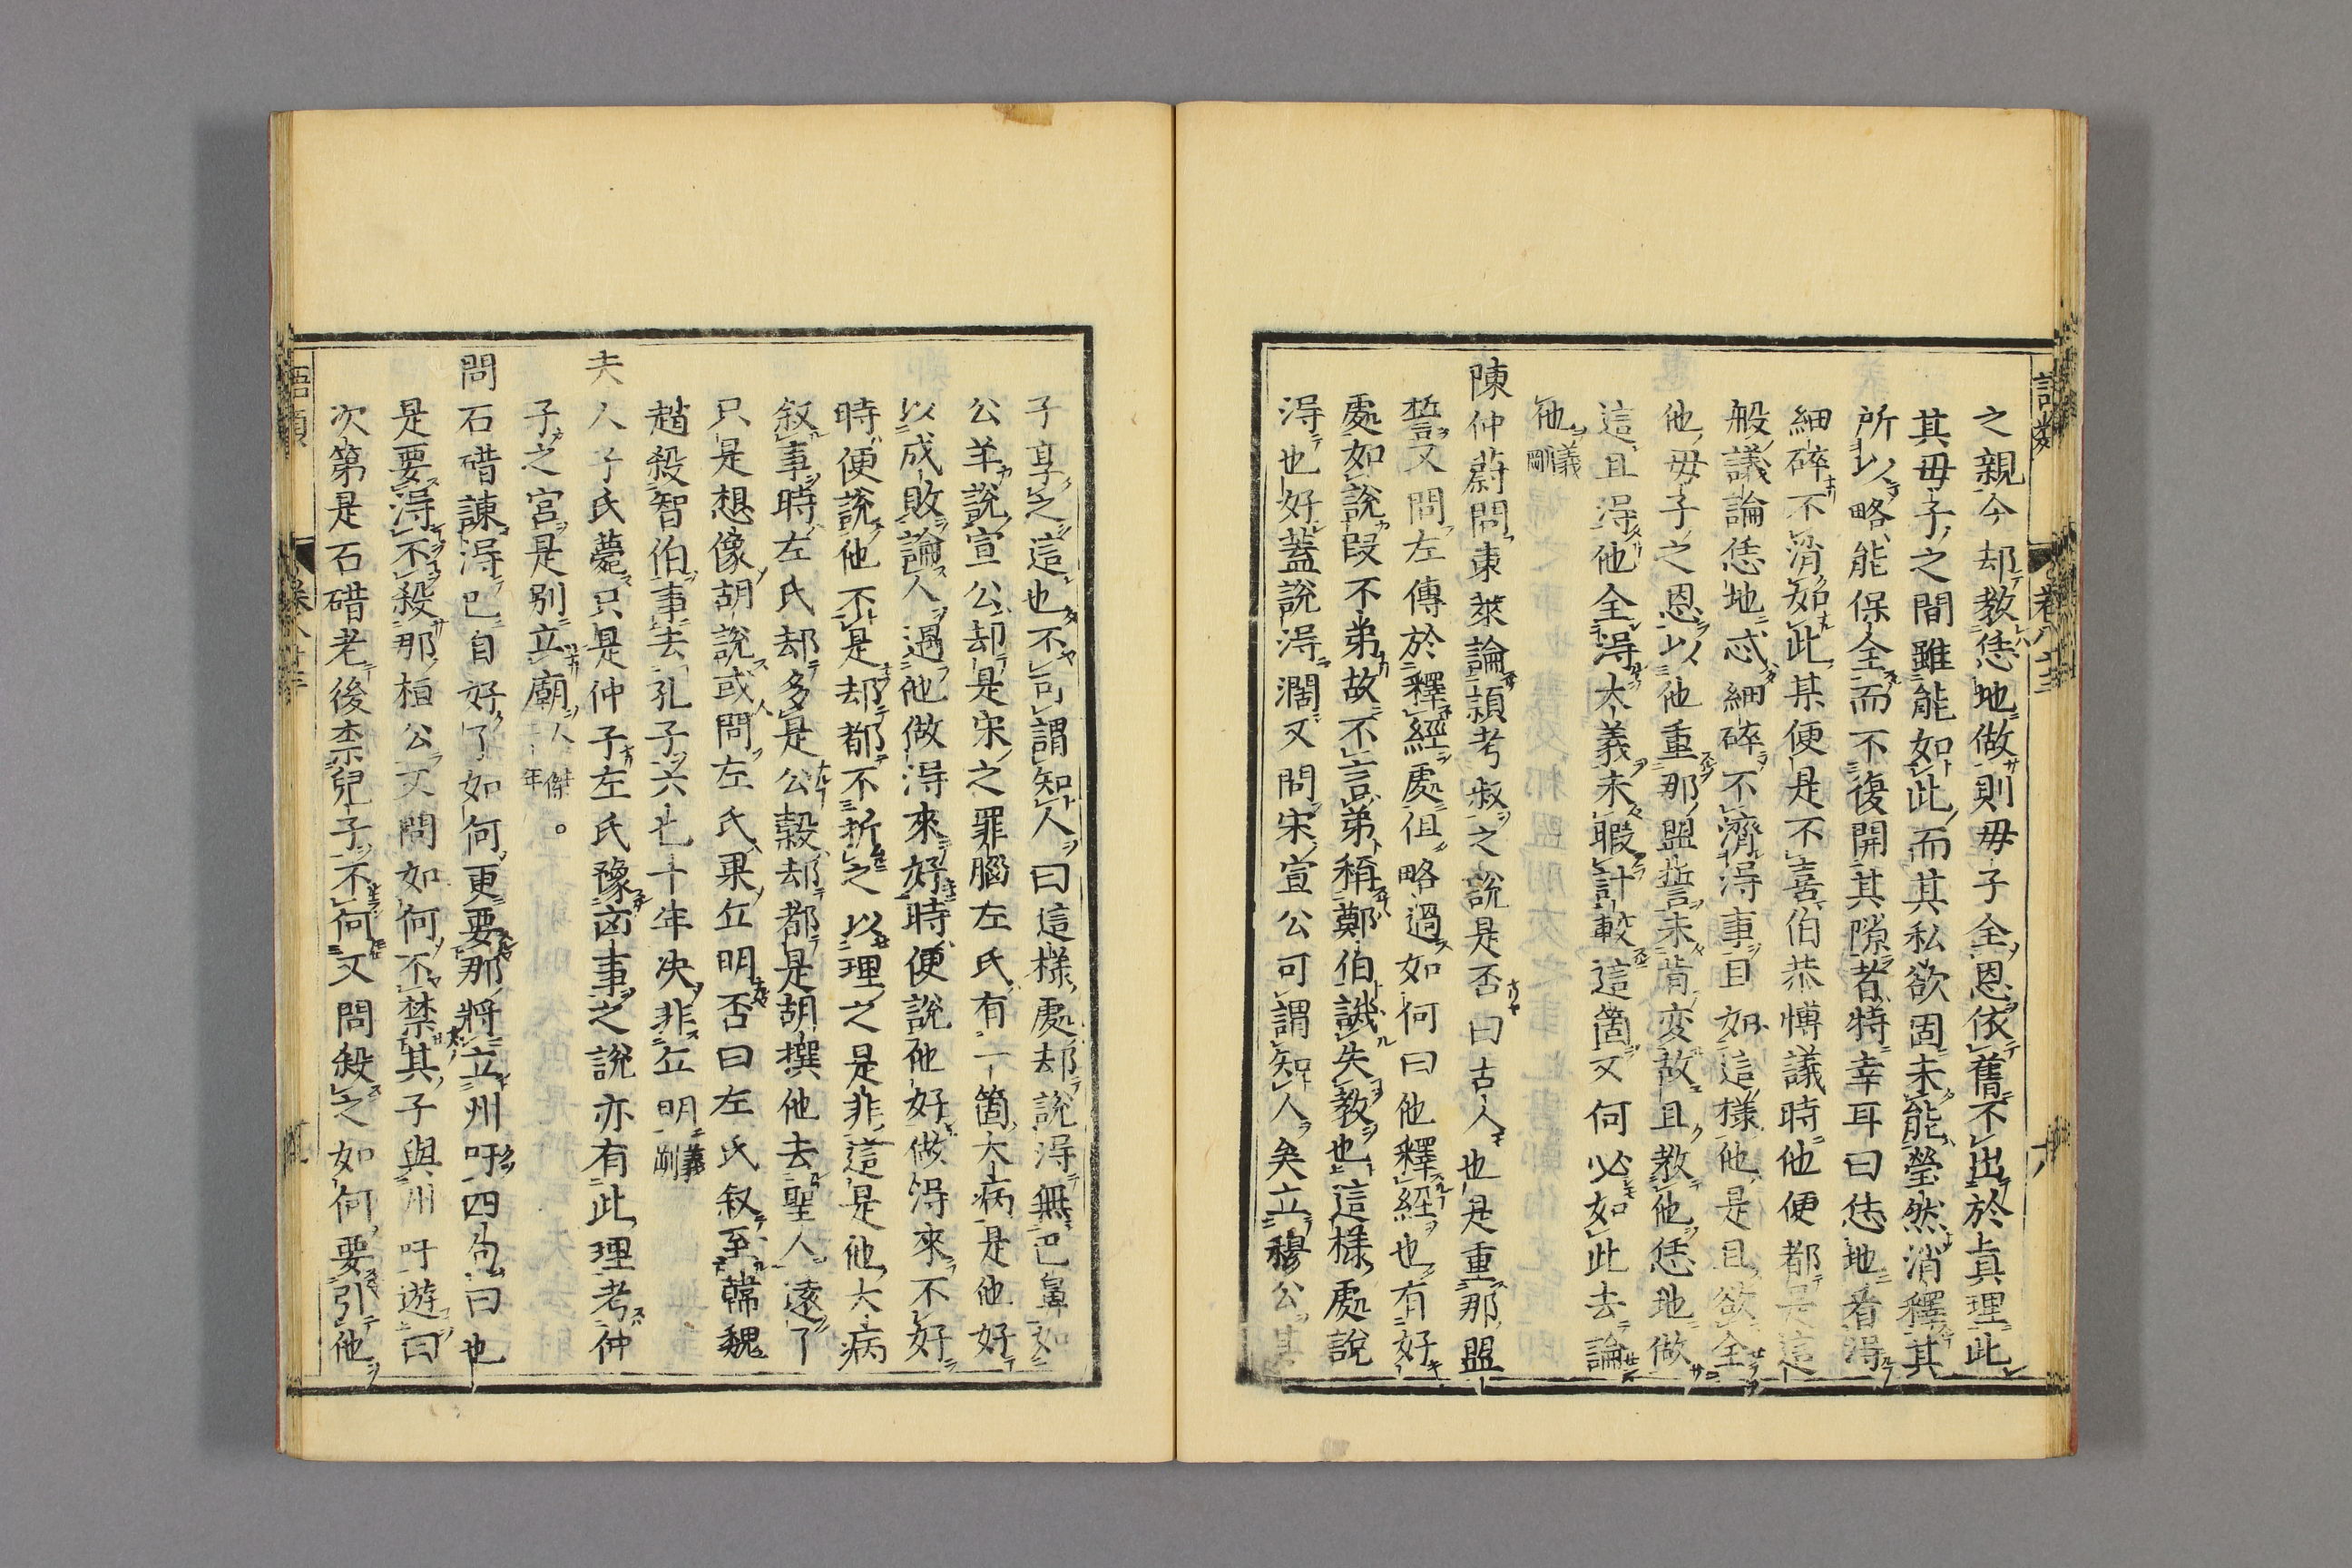 之親今却教恁地做則毋子全恩依舊不出於眞理此
其毋子之間雖能如此而其私欲固未能瑩然消釋其
所以略能保全而不復開其隙者特幸耳曰恁地看得
細碎不消如此某便是不喜伯恭愽議時他便都是這
般議論恁地忒細碎不濟得事且如這樣他是且欲全
他毋子之恩以他重那盟誓未肯变故且教他恁地做
這且得他全得大義未暇計較這箇又何必如此去論
他義剛
陳仲蔚問東萊論頴考叔之說是否曰古人也是重那盟
誓又問左傳於釋經處但略過如何曰他釋經也有好
處如說段不弟故不言弟稱鄭伯譏失教也這樣處說
得也好蓋說得濶又問宋宣公可謂知人矣立穆公其
子享之這也不可謂知人曰這樣處却說得無巴鼻如
公羊說宣公却是宋之罪腦左氏有一箇大病是他好
以成敗論人遇他做得來好時便說他好做得來不好
時便說他不是却都不折之以理之是非這是他大病
叙事時左氏却多是公榖却都是胡撰他去聖人遠了
只是想像胡說或問左氏果丘明否曰左氏叙至韓魏
趙殺智伯事去孔子六七十年决非丘明義剛
夫人子氏薨只是仲子左氏豫凶事之說亦有此理考仲
子之宮是别立廟人傑年。
問石碏諌得巳自好了如何更要那將立州吁四句曰也
是要得不殺那桓公又問如何不禁其子與州吁遊曰
次第是石碏老後柰兒子不何又問殺之如何要引他
語類
卷八十三